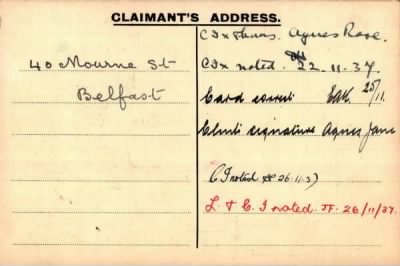 CLAIMANT'S ADDRESS.
40 Mourne St
Belfast
C I x shews. Agnes Rose.
C I x noted. 22.11.37.
Card correct EAK 25/11.
Clmt's signature Agnes Jane
C.I noted 26.11.37
L. & C. I noted. JF. 26/11/37.